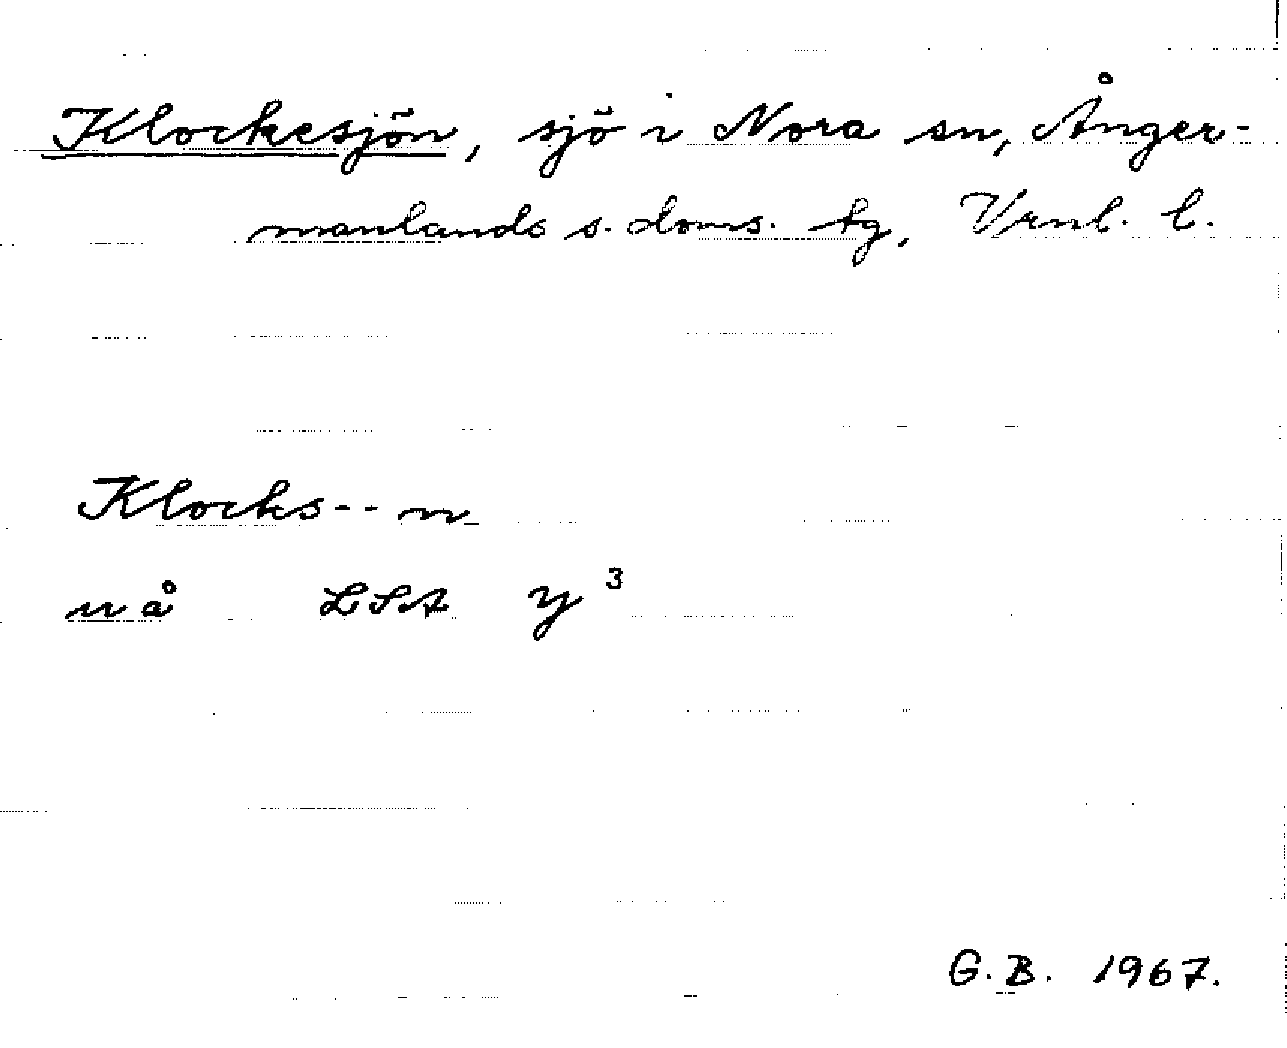 Klockesjön, sjö i Nora sn, Ånger-
manlands s. doms. tg, Vrnl. l.
Klocks--n
uå LSA Y³
G.B. 1967.